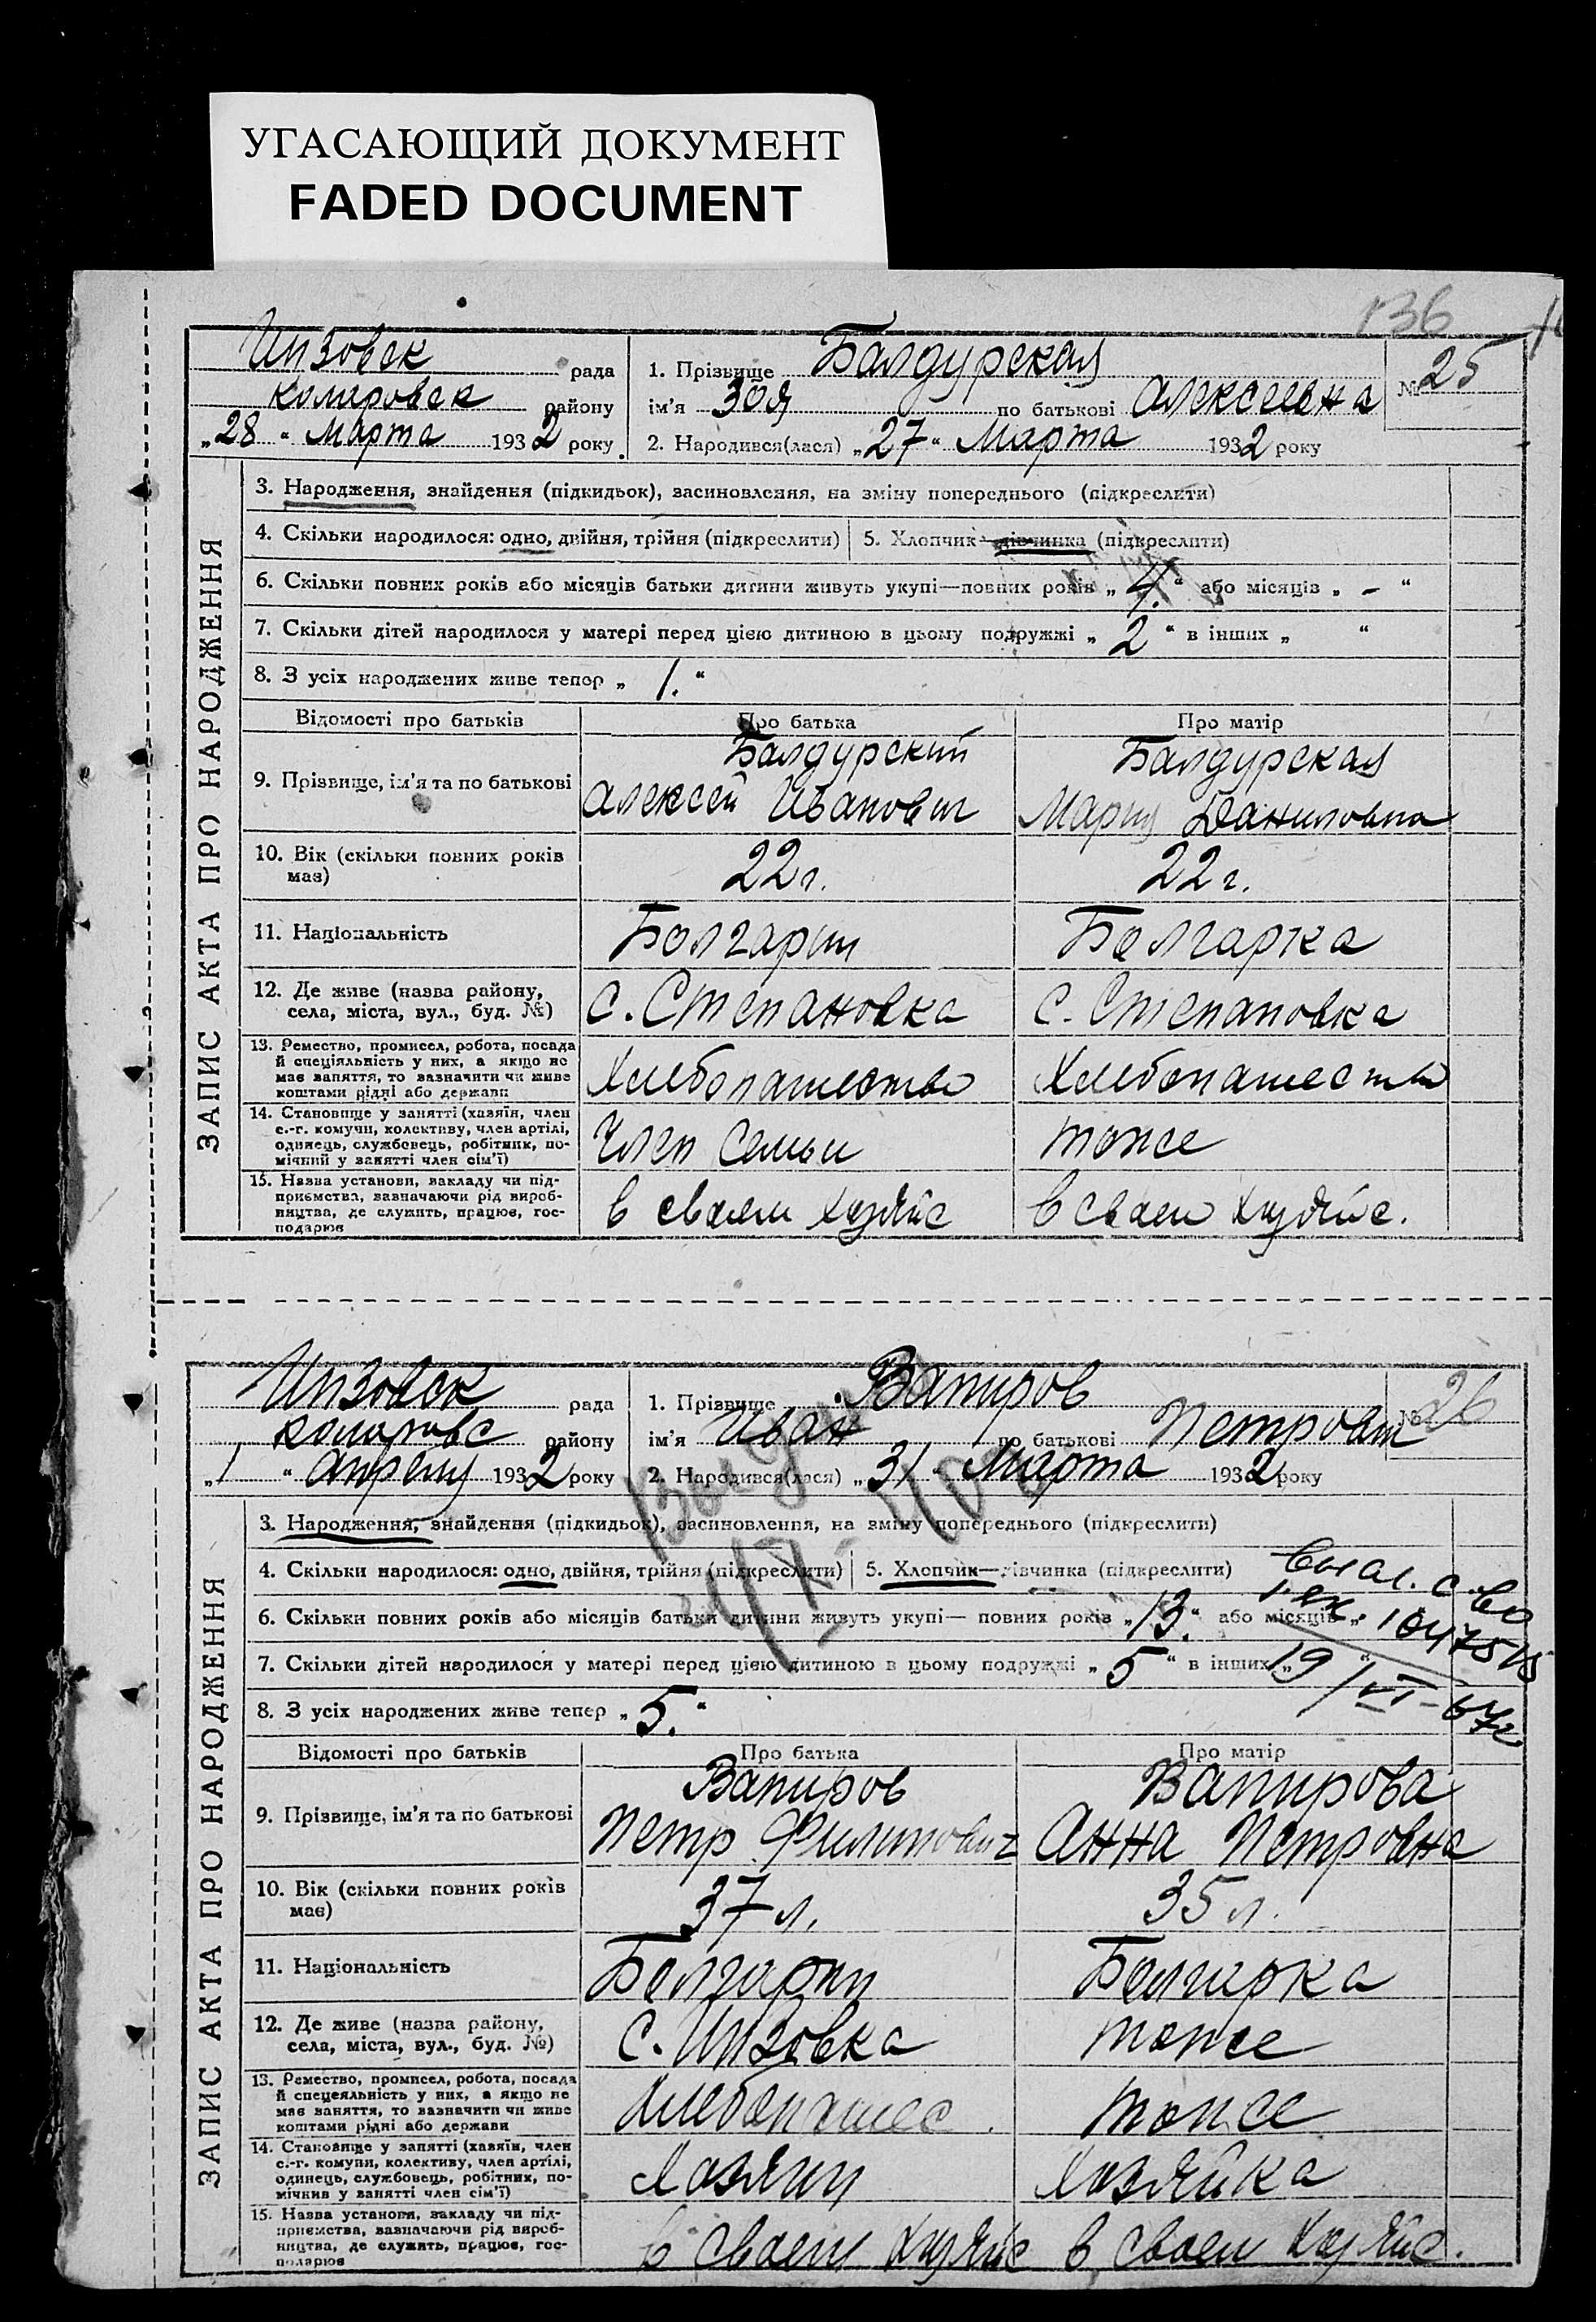 УГАСАЮЩИЙ ДОКУМЕНТ
FADED DOCUMENT
136
ЗАПИС АКТА ПРО НАРОДЖЕННЯ
Инзовск рада
Коларовск району
„28“ Марта 1932 року
1. Прізвище Балдурская
ім'я Зоя по батькові Алексеевна
№ 25
2. Народився(лася) „27“ Марта 1932 року
3. Народження, знайдення (підкидьок), засиновлення, на зміну попереднього (підкреслити)
4. Скільки народилося: одно, двійня, трійня (підкреслити) 5. Хлопчик—дівчинка (підкреслити)
6. Скільки повних років або місяців батьки дитини живуть укупі—повних років „4.“ або місяців „ – “
7. Скільки дітей народилося у матері перед цією дитиною в цьому подружжі „2“ в інших „ “
8. З усіх народжених живе тепер „1.“
Відомості про батьків Про батька Про матір
9. Прізвище, ім'я та по батькові
Балдурский
Алексей Иванович
Балдурская
Мария Даниловна
10. Вік (скільки повних років
має)
22 г. 22 г.
11. Національність Болгарин Болгарка
12. Де живе (назва району,
села, міста, вул., буд. №)
С. Степановка С. Степановка
13. Ремество, промисел, робота, посада
й спеціяльність у них, а якщо не
має заняття, то зазначити чи живе
коштами рідні або держави
Хлебопашество Хлебопашество
14. Становище у занятті (хазяїн, член
с.-г. комуни, колективу, член артілі,
одинець, службовець, робітник, по-
мічний у занятті член сім'ї)
Член Семьи тоже
15. Назва установи, закладу чи під-
приємства, зазначаючи рід вироб-
ництва, де служить, працює, гос-
подарює
в своем хозяйс в своем хозяйс.
ЗАПИС АКТА ПРО НАРОДЖЕННЯ
Инзовск рада
Коларовс району
„1“ Апреля 1932 року
1. Прізвище Вапиров
ім'я Иван по батькові Петрович
№ 26
2. Народився(лася) „31“ Марта 1932 року
3. Народження, знайдення (підкидьок), засиновлення, на зміну попереднього (підкреслити)
4. Скільки народилося: одно, двійня, трійня (підкреслити) 5. Хлопчик—дівчинка (підкреслити)
6. Скільки повних років або місяців батьки дитини живуть укупі— повних років „13.“ або місяців „
7. Скільки дітей народилося у матері перед цією дитиною в цьому подружжі „5“ в інших „ “
19/VI-
8. З усіх народжених живе тепер „5.“
Відомості про батьків Про батька Про матір
9. Прізвище, ім'я та по батькові
Вапиров
Петр Филипович
Вапирова
Анна Петровна
10. Вік (скільки повних років
має)
37 л. 35 л.
11. Національність Болгарин Болгарка
12. Де живе (назва району,
села, міста, вул., буд. №)
С. Инзовка тоже
13. Ремество, промисел, робота, посада
й спецеяльність у них, а якщо не
має заняття, то зазначити чи живе
коштами рідні або держави
Хлебопашес. тоже
14. Становище у занятті (хазяїн, член
с.-г. комуни, колективу, член артілі,
одинець, службовець, робітник, по-
мічник у занятті член сім'ї)
Хозяин Хозяйка
15. Назва установи, закладу чи під-
приємства, зазначаючи рід вироб-
ництва, де служить, працює, гос-
подарює
в своем хозяйс в своем хозяйс.